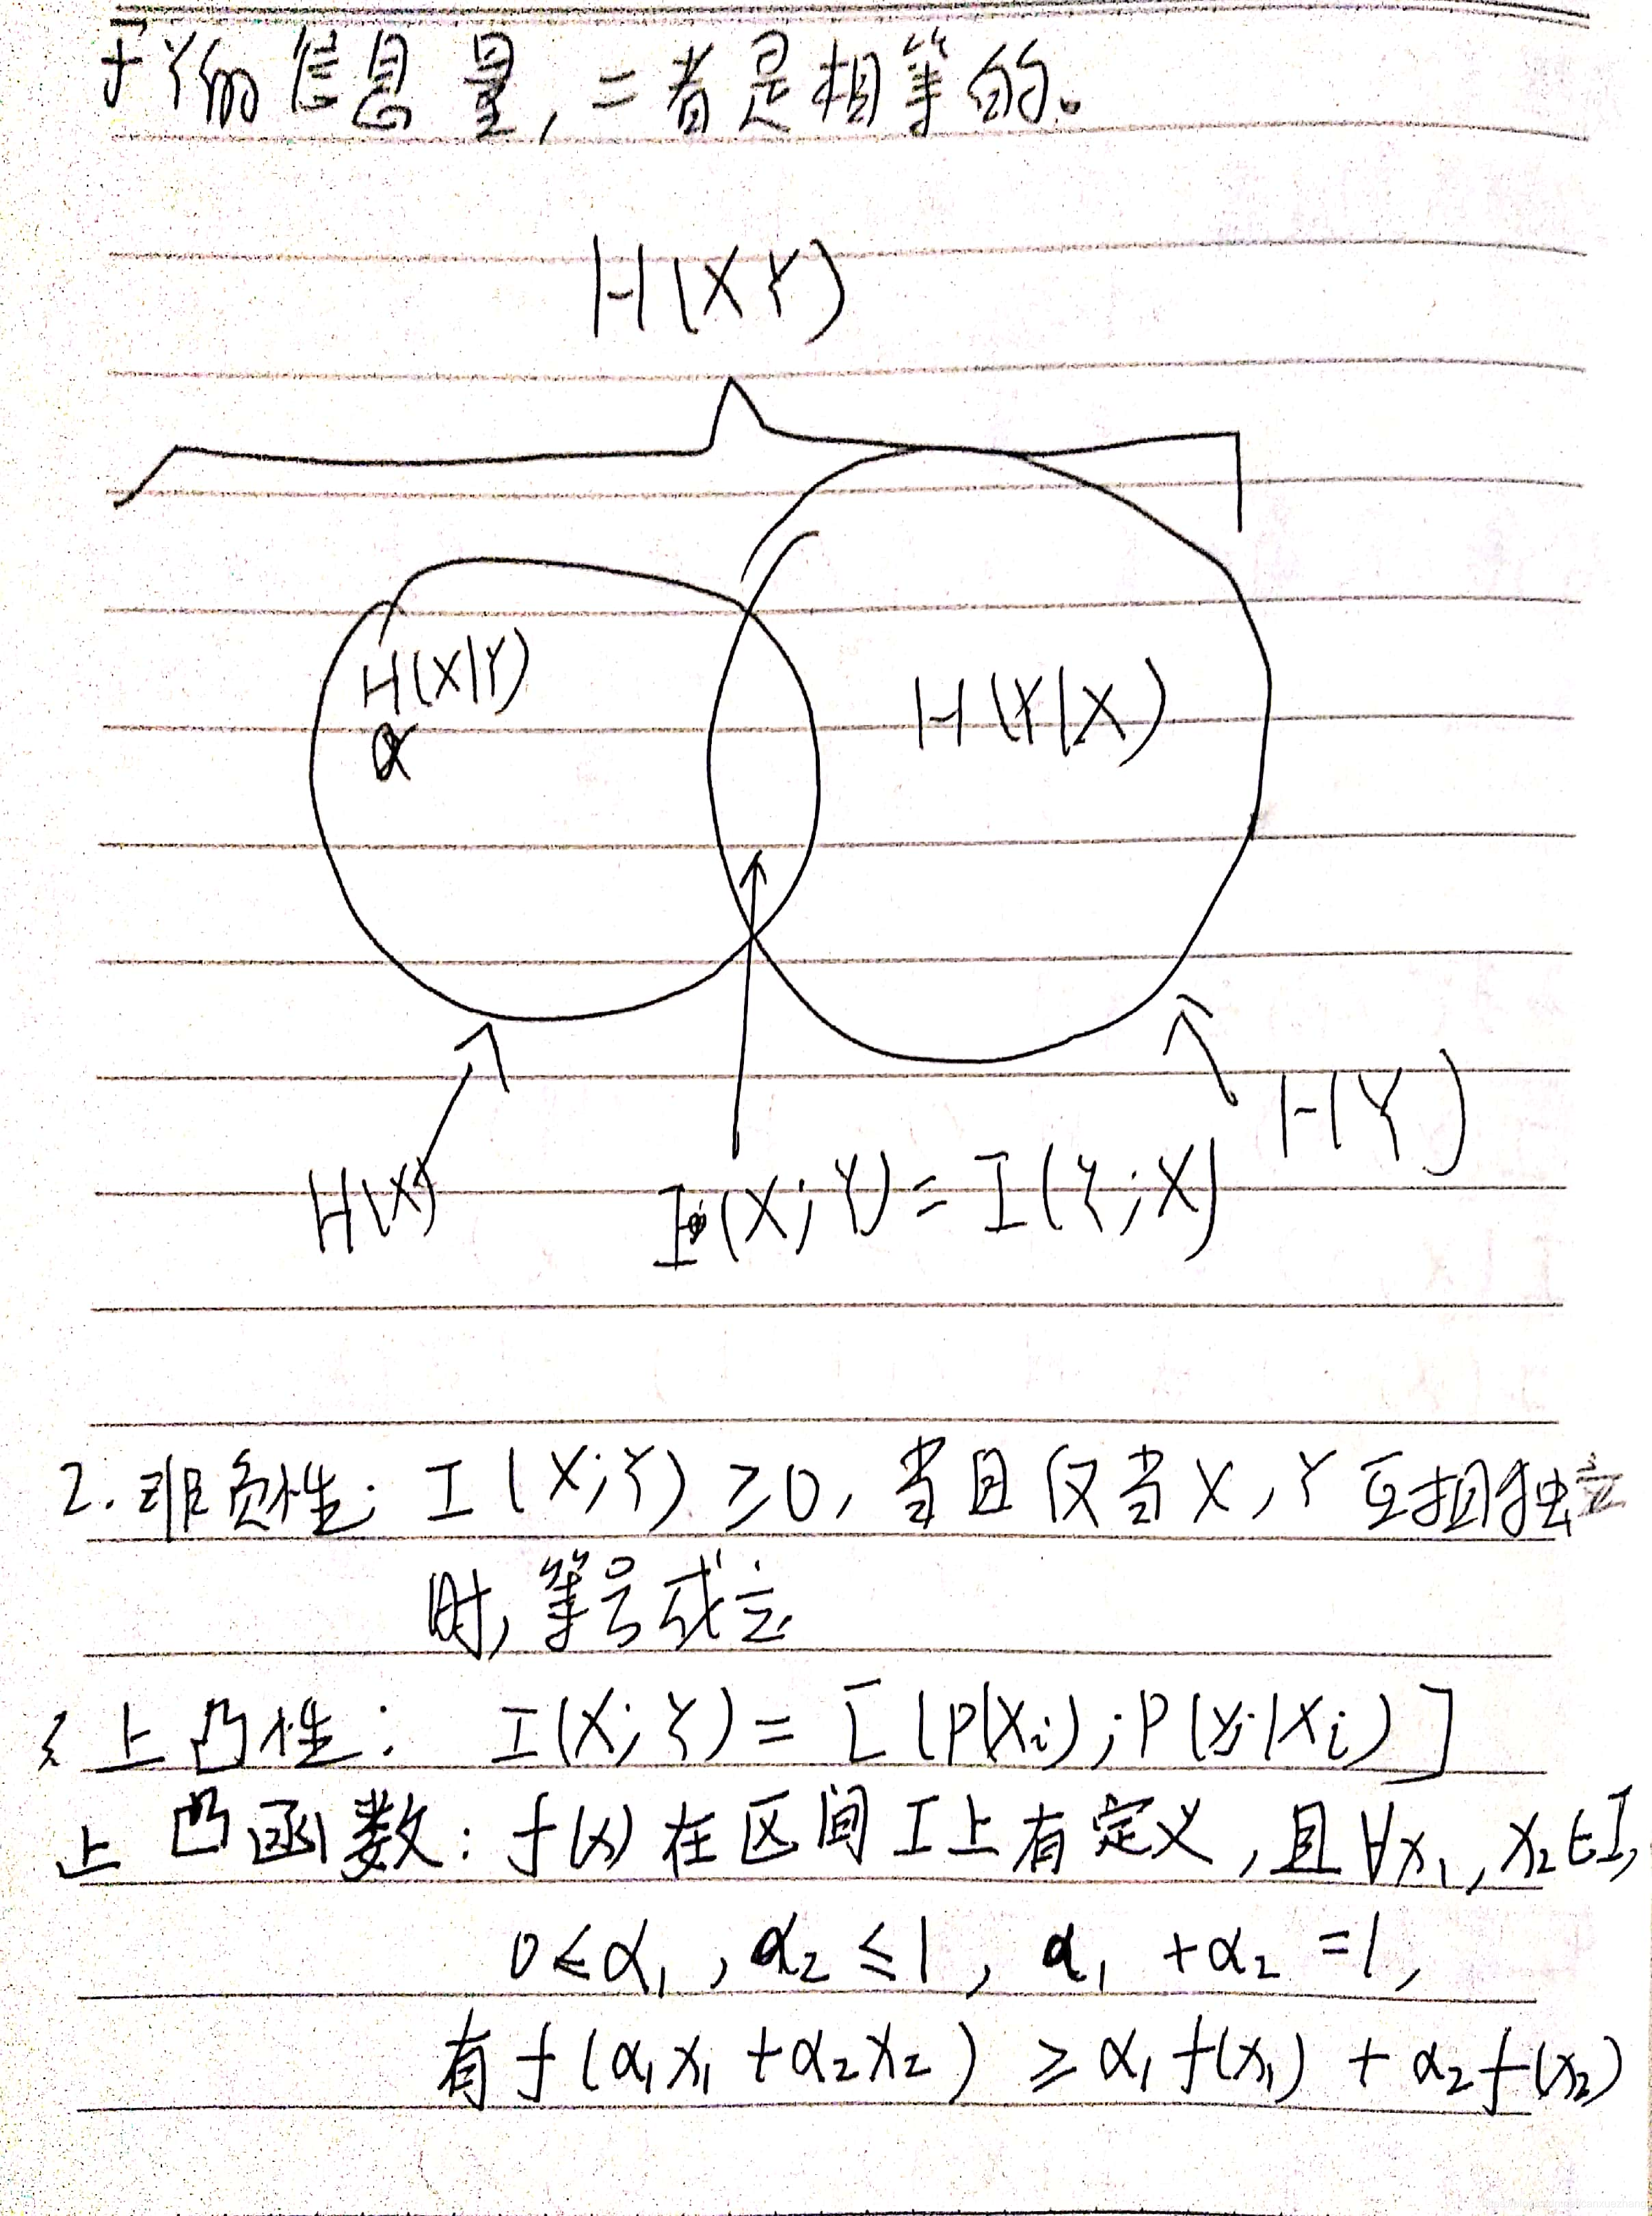 于Y的信息量,二者是相等的。
H(XY)
H(X|Y)
H(Y|X)
H(Y)
H(X)
I(X;Y)=I(Y;X)
2.非负性: I(X;Y)≥0,当且仅当X,Y互相独立
时,等号成立
上凸性: I(X;Y)=I[P(Xi);P(yj|Xi)]
上凸函数:f(x)在区间I上有定义,且∀x₁,x₂∈I,
0≤α₁,α₂≤1,α₁+α₂=1,
有f(α₁x₁+α₂x₂)≥α₁f(x₁)+α₂f(x₂)